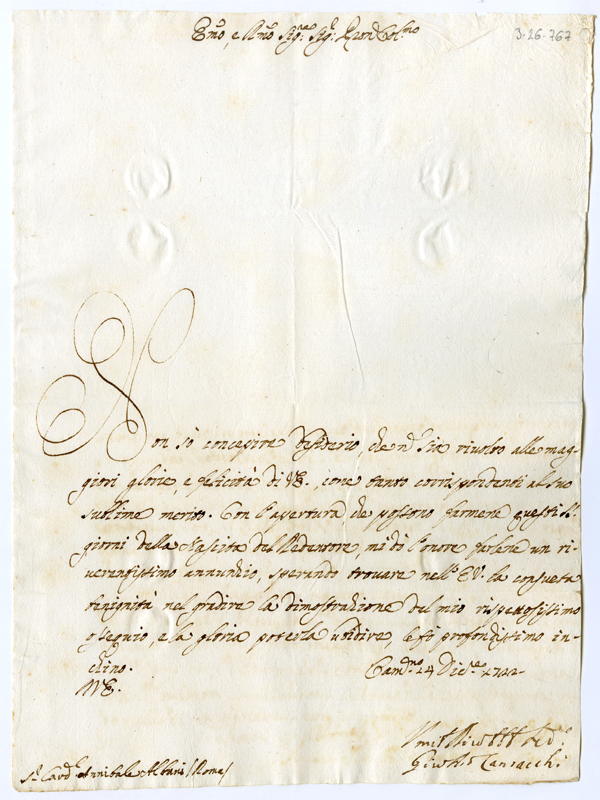 Em̃o, e Rm̃o Sig.re Sig.r Pron Col.mo
3-26-767
Non sò concepire desiderio, che nõ sia rivolto alle mag-
giori glorie, e felicità di VE., come tanto corrispondenti al suo
sublime merito. Con l'apertura che possono farmene questi S.ti
giorni della Nascita del Redentore, mi dò l'onore farlene un ri-
verentissimo annunzio, sperando trovare nell'EV. la consueta
benignità nel gradire la dimostrazione del mio rispettosissimo
ossequio, e la gloria poterla ubidire, le fò profondissimo in-
chino.
Cam.no 24 Dic.re 1722
A VE.
S.r Card.e Annibale Albani (Roma)